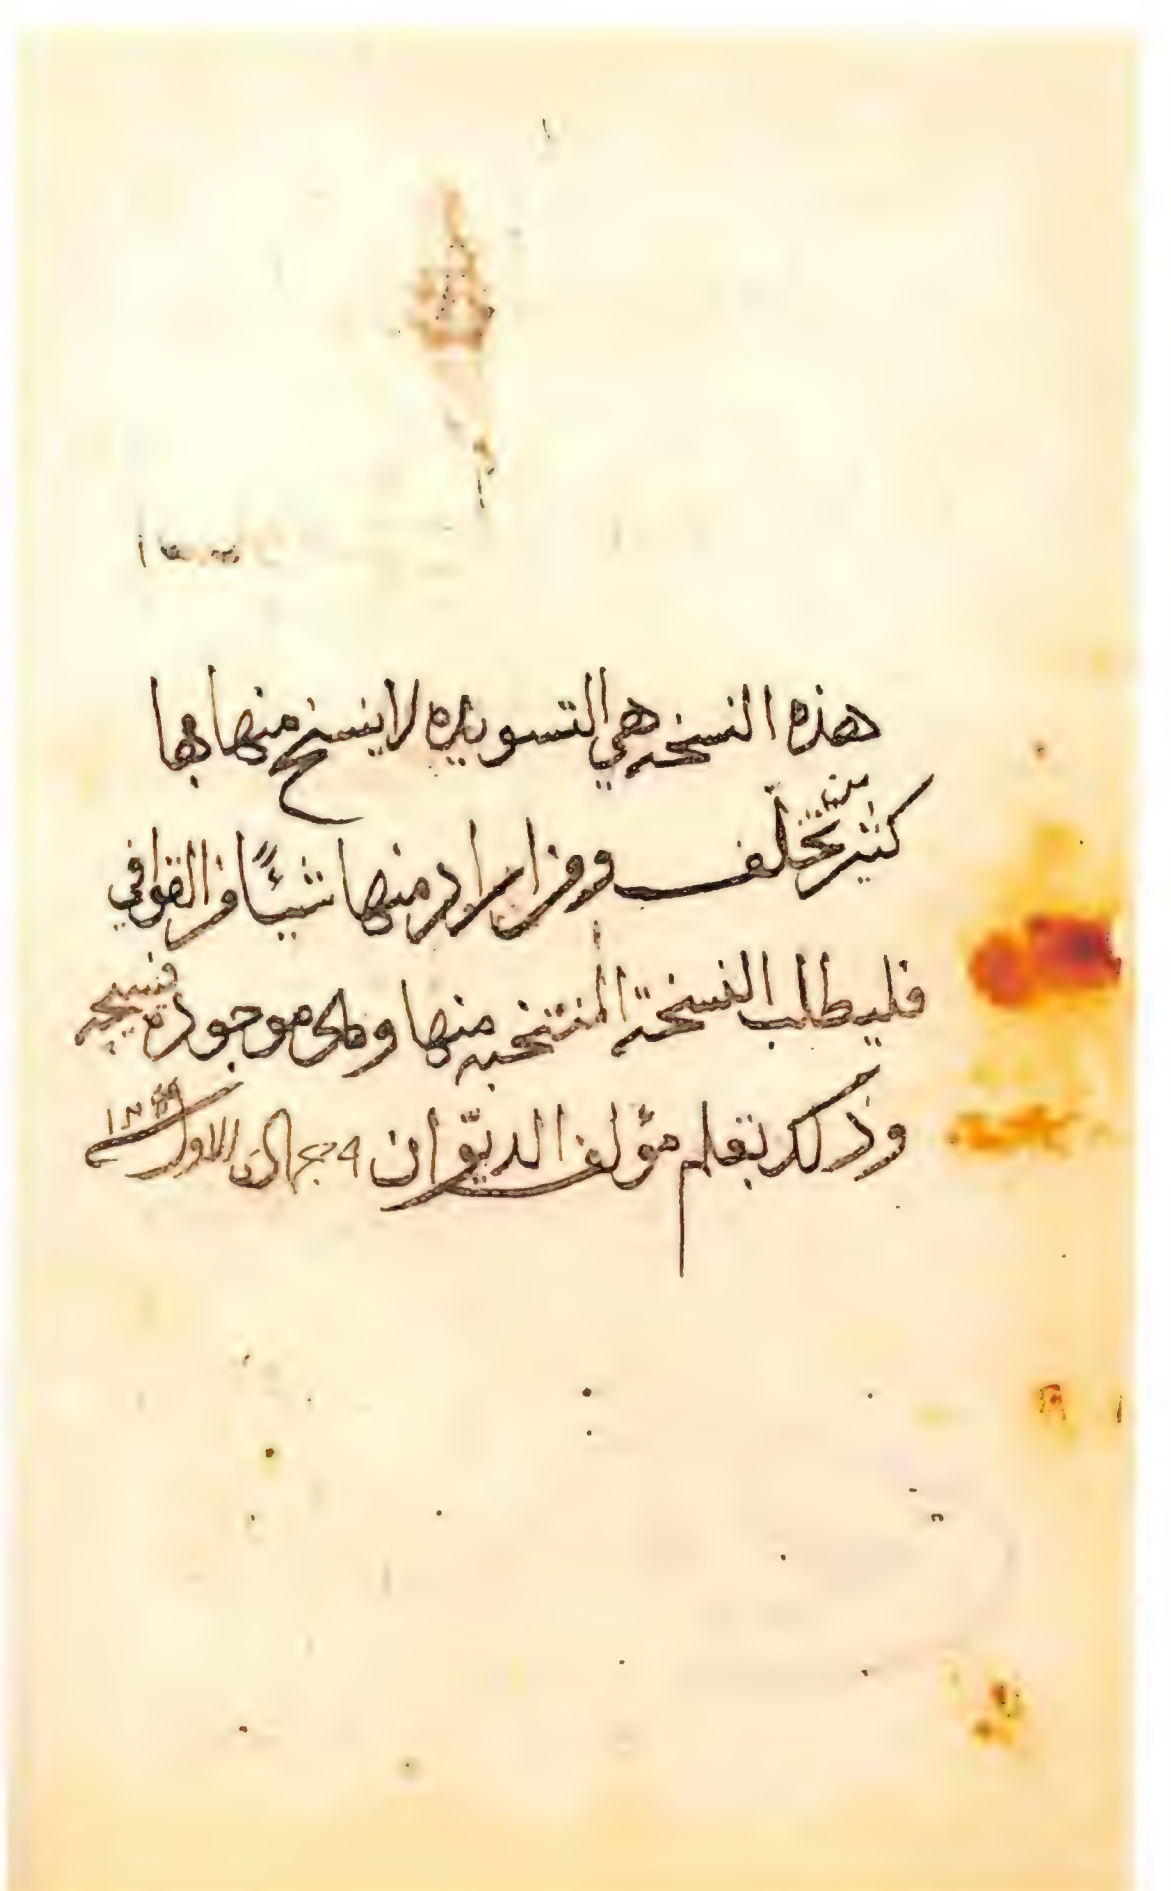 هذه النسخه هي التسويده لا ينسخ منها بها
كثير تخلف ومن اراد منها شيئاً من القوافي
فليطلب النسخة المنتخبه منها وهي موجوده
وذلك بقلم مؤلف الديوان جمادى الاول